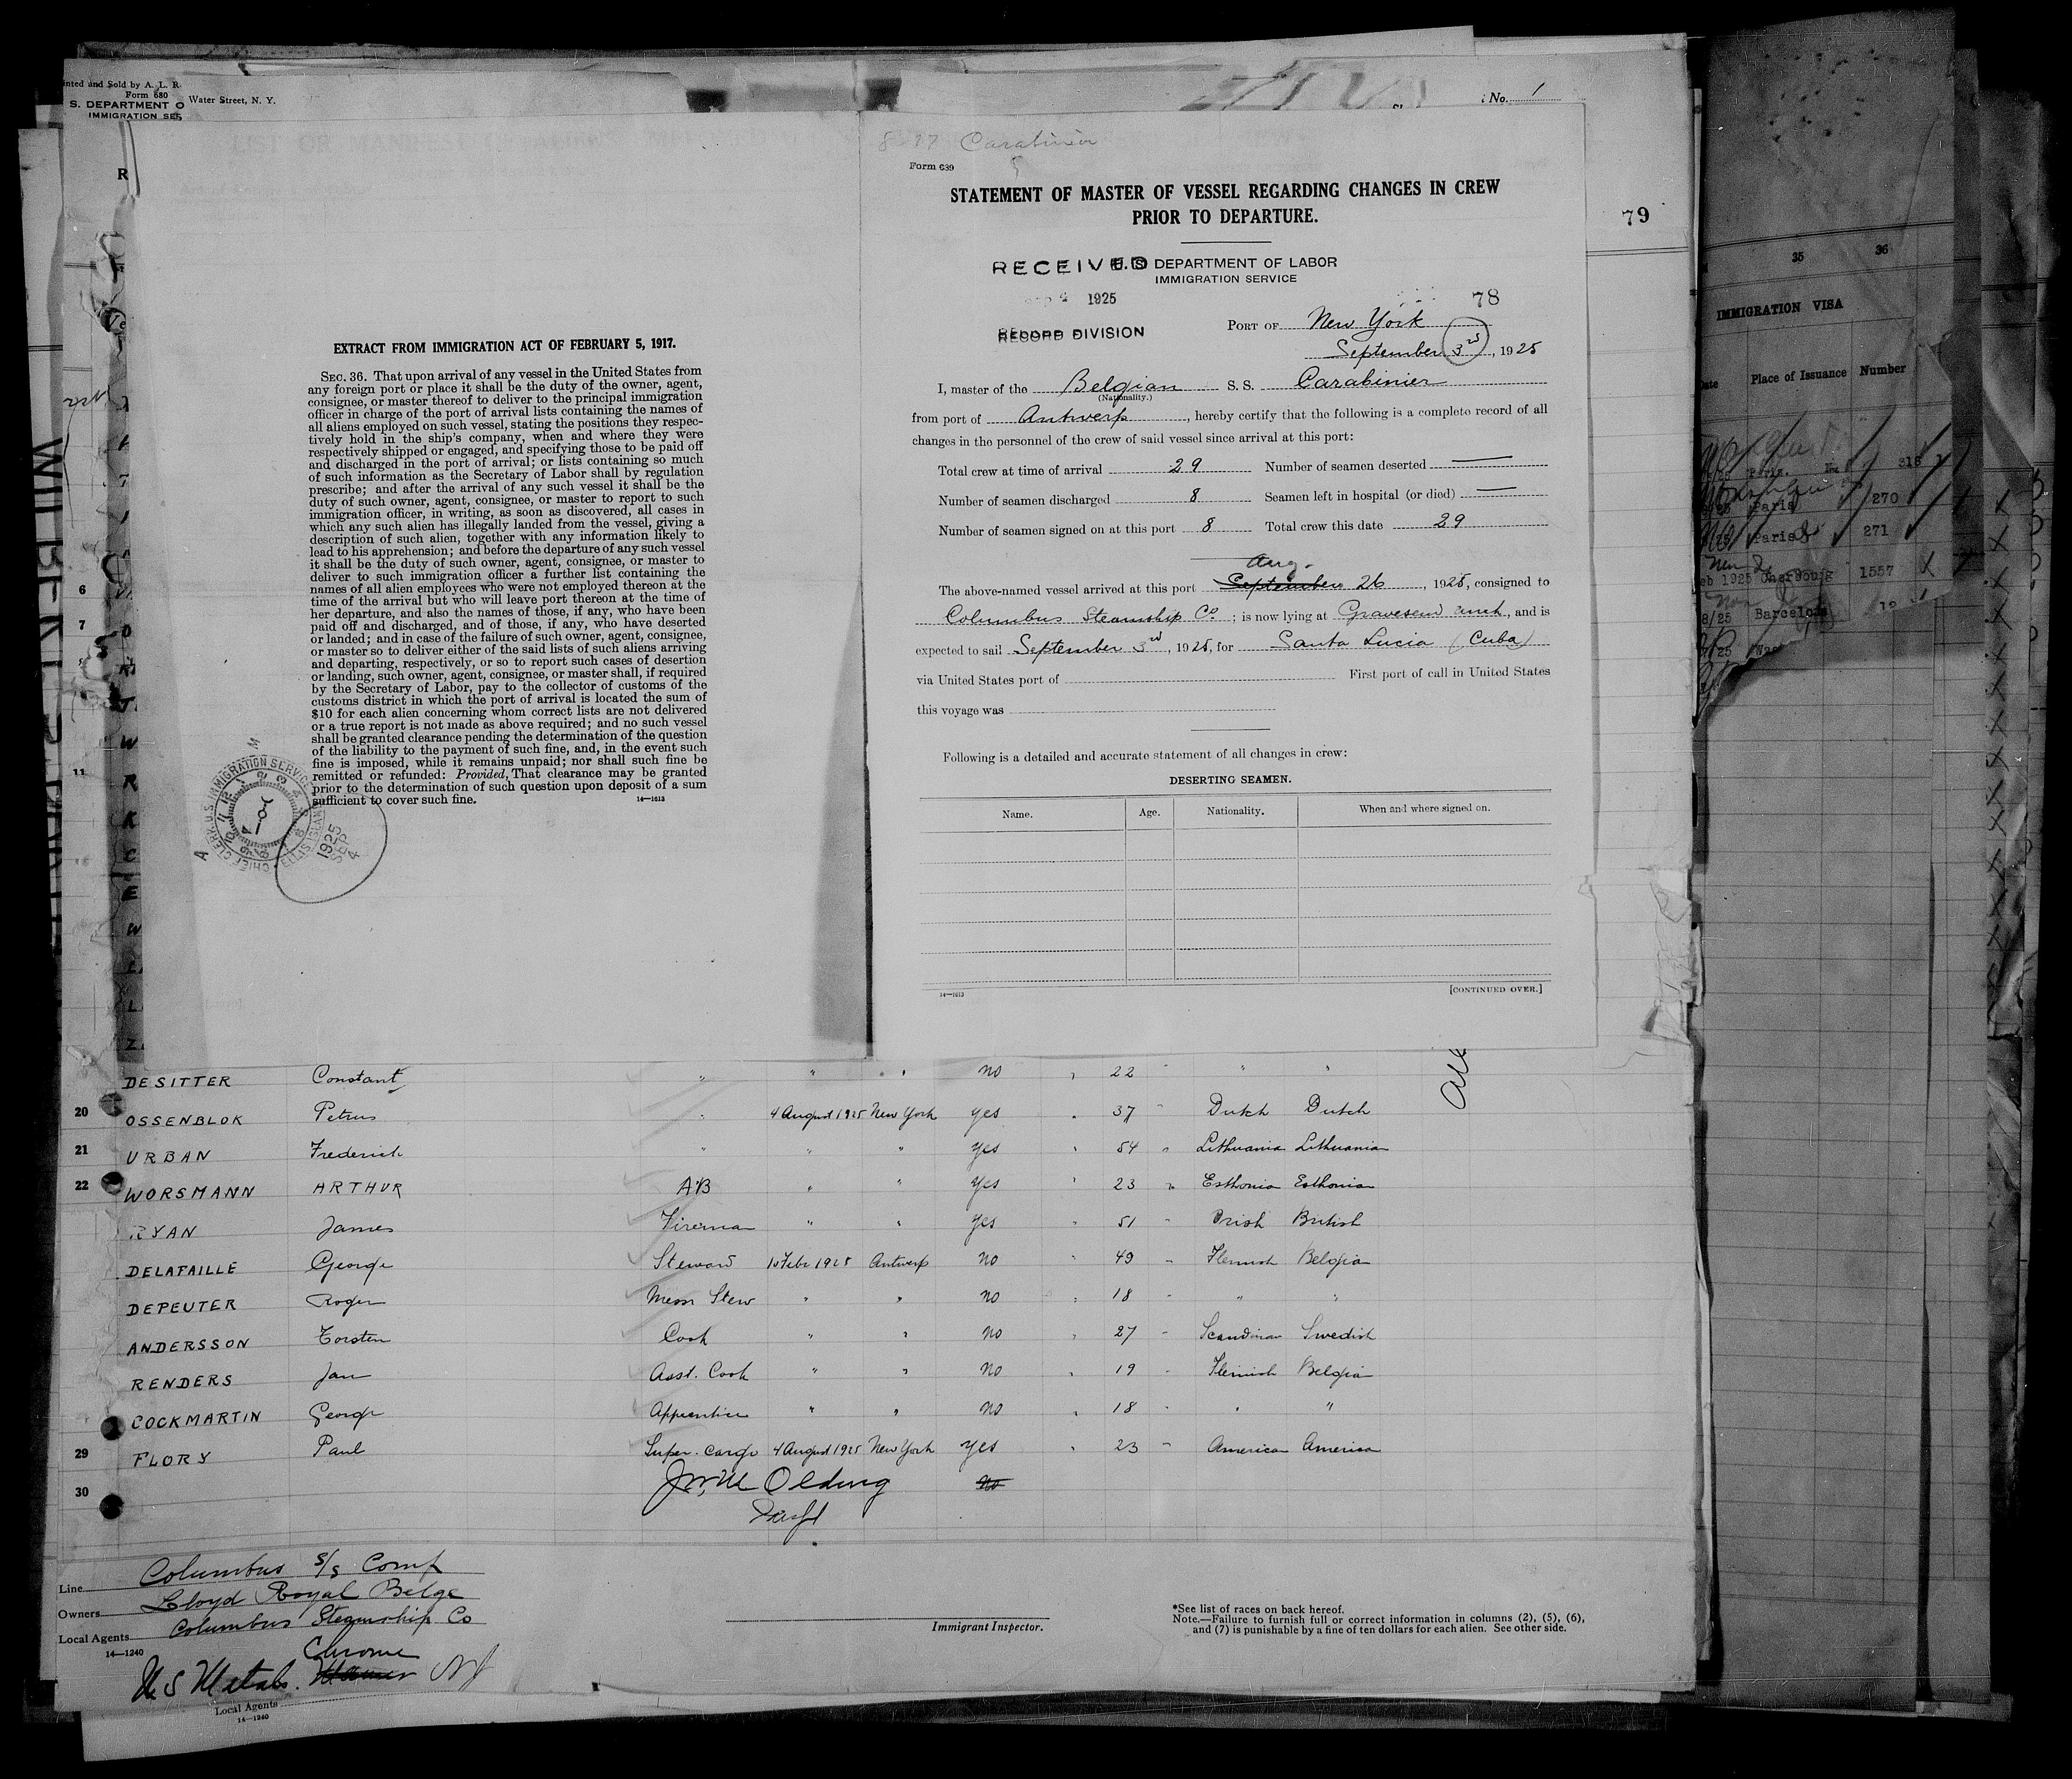 Form 680
S. DEPARTMENT O
Water Street, N. Y.
No. 1
8-27 Carabinier
Form 639
STATEMENT OF MASTER OF VESSEL REGARDING CHANGES IN CREW
PRIOR TO DEPARTURE.
79
RECEIVED U. S. DEPARTMENT OF LABOR
IMMIGRATION SERVICE
1925
78
RECORD DIVISION
PORT OF New York
September 3rd, 1925
I, master of the Belgian S. S. Carabinier
(Nationality.)
from port of Antwerp, hereby certify that the following is a complete record of all
changes in the personnel of the crew of said vessel since arrival at this port:
Total crew at time of arrival 29 Number of seamen deserted —
Number of seamen discharged 8 Seamen left in hospital (or died) —
Number of seamen signed on at this port 8 Total crew this date 29
Aug.
The above-named vessel arrived at this port September 26, 1925, consigned to
Columbus Steamship Co.; is now lying at Gravesend anch, and is
expected to sail September 3rd, 1925, for Santa Lucia (Cuba)
via United States port of First port of call in United States
this voyage was
Following is a detailed and accurate statement of all changes in crew:
DESERTING SEAMEN.
Name. Age. Nationality. When and where signed on.
14—1613 [CONTINUED OVER.]
EXTRACT FROM IMMIGRATION ACT OF FEBRUARY 5, 1917.
SEC. 36. That upon arrival of any vessel in the United States from
any foreign port or place it shall be the duty of the owner, agent,
consignee, or master thereof to deliver to the principal immigration
officer in charge of the port of arrival lists containing the names of
all aliens employed on such vessel, stating the positions they respec-
tively hold in the ship's company, when and where they were
respectively shipped or engaged, and specifying those to be paid off
and discharged in the port of arrival; or lists containing so much
of such information as the Secretary of Labor shall by regulation
prescribe; and after the arrival of any such vessel it shall be the
duty of such owner, agent, consignee, or master to report to such
immigration officer, in writing, as soon as discovered, all cases in
which any such alien has illegally landed from the vessel, giving a
description of such alien, together with any information likely to
lead to his apprehension; and before the departure of any such vessel
it shall be the duty of such owner, agent, consignee, or master to
deliver to such immigration officer a further list containing the
names of all alien employees who were not employed thereon at the
time of the arrival but who will leave port thereon at the time of
her departure, and also the names of those, if any, who have been
paid off and discharged, and of those, if any, who have deserted
or landed; and in case of the failure of such owner, agent, consignee,
or master so to deliver either of the said lists of such aliens arriving
and departing, respectively, or so to report such cases of desertion
or landing, such owner, agent, consignee, or master shall, if required
by the Secretary of Labor, pay to the collector of customs of the
customs district in which the port of arrival is located the sum of
$10 for each alien concerning whom correct lists are not delivered
or a true report is not made as above required; and no such vessel
shall be granted clearance pending the determination of the question
of the liability to the payment of such fine, and, in the event such
fine is imposed, while it remains unpaid; nor shall such fine be
remitted or refunded: Provided, That clearance may be granted
prior to the determination of such question upon deposit of a sum
sufficient to cover such fine.
14—1613
CHIEF CLERK U.S. IMMIGRATION SERVICE
ELLIS ISLAND
1925
SEP
4
35 36
IMMIGRATION VISA
Place of Issuance Number
Paris. 315
Paris 270
Paris 271
1925 Cherbourg 1557
8/25 Barcelona
6
7
11
DESITTER Constant " " " no 22 " "
20 OSSENBLOK Petrus " 4 August 1925 New York yes 37 Dutch Dutch
21 URBAN Frederich " " " yes 54 Lithuania Lithuanian
22 WORSMANN ARTHUR AB " " yes 23 Esthonia Esthonian
RYAN James Fireman " " yes 51 Irish British
DELAFAILLE George Steward 10 Febr 1925 Antwerp no 49 Flemish Belgian
DEPEUTER Roger Mess Stew " " no 18 " "
ANDERSSON Torsten Cook " " no 27 Scandinav Swedish
RENDERS Jan Asst. Cook " " no 19 Flemish Belgian
COCKMARTIN George Apprentice " " no 18 " "
29 FLORY Paul Super-cargo 4 August 1925 New York yes 23 American America
30 no
Line Columbus S/S Comp
Owners Lloyd Royal Belge
Local Agents Columbus Steamship Co
14—1240
Chrome
U S Metals. NJ
Local Agents
14—1240
Immigrant Inspector.
*See list of races on back hereof.
Note.—Failure to furnish full or correct information in columns (2), (5), (6),
and (7) is punishable by a fine of ten dollars for each alien. See other side.